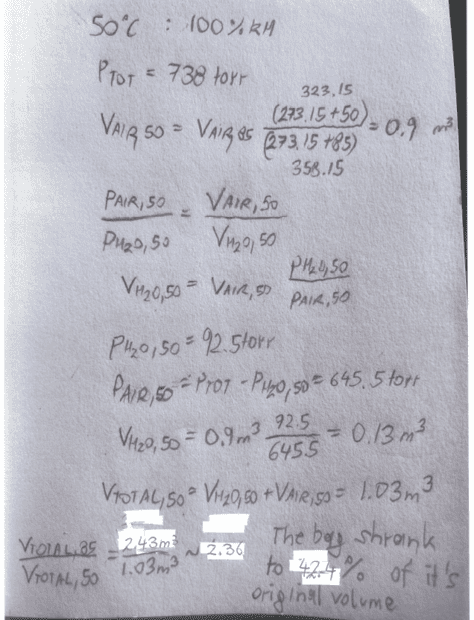 50°C : 100% RH
PTOT = 738 torr
323.15
VAIR 50 = VAIR 85 (273.15+50) / (273.15+85) = 0.9 m³
358.15
PAIR,50 / PH₂O,50 = VAIR,50 / VH₂O,50
VH₂O,50 = VAIR,50 PH₂O,50 / PAIR,50
PH₂O,50 = 92.5 torr
PAIR,50 = PTOT - PH₂O,50 = 645.5 torr
VH₂O,50 = 0.9 m³ 92.5 / 645.5 = 0.13 m³
VTOTAL,50 = VH₂O,50 + VAIR,50 = 1.03 m³
VTOTAL,85 / VTOTAL,50 = 2.43m³ / 1.03m³ ~ 2.36
The bag shrank
to 42.4 % of it's
original volume